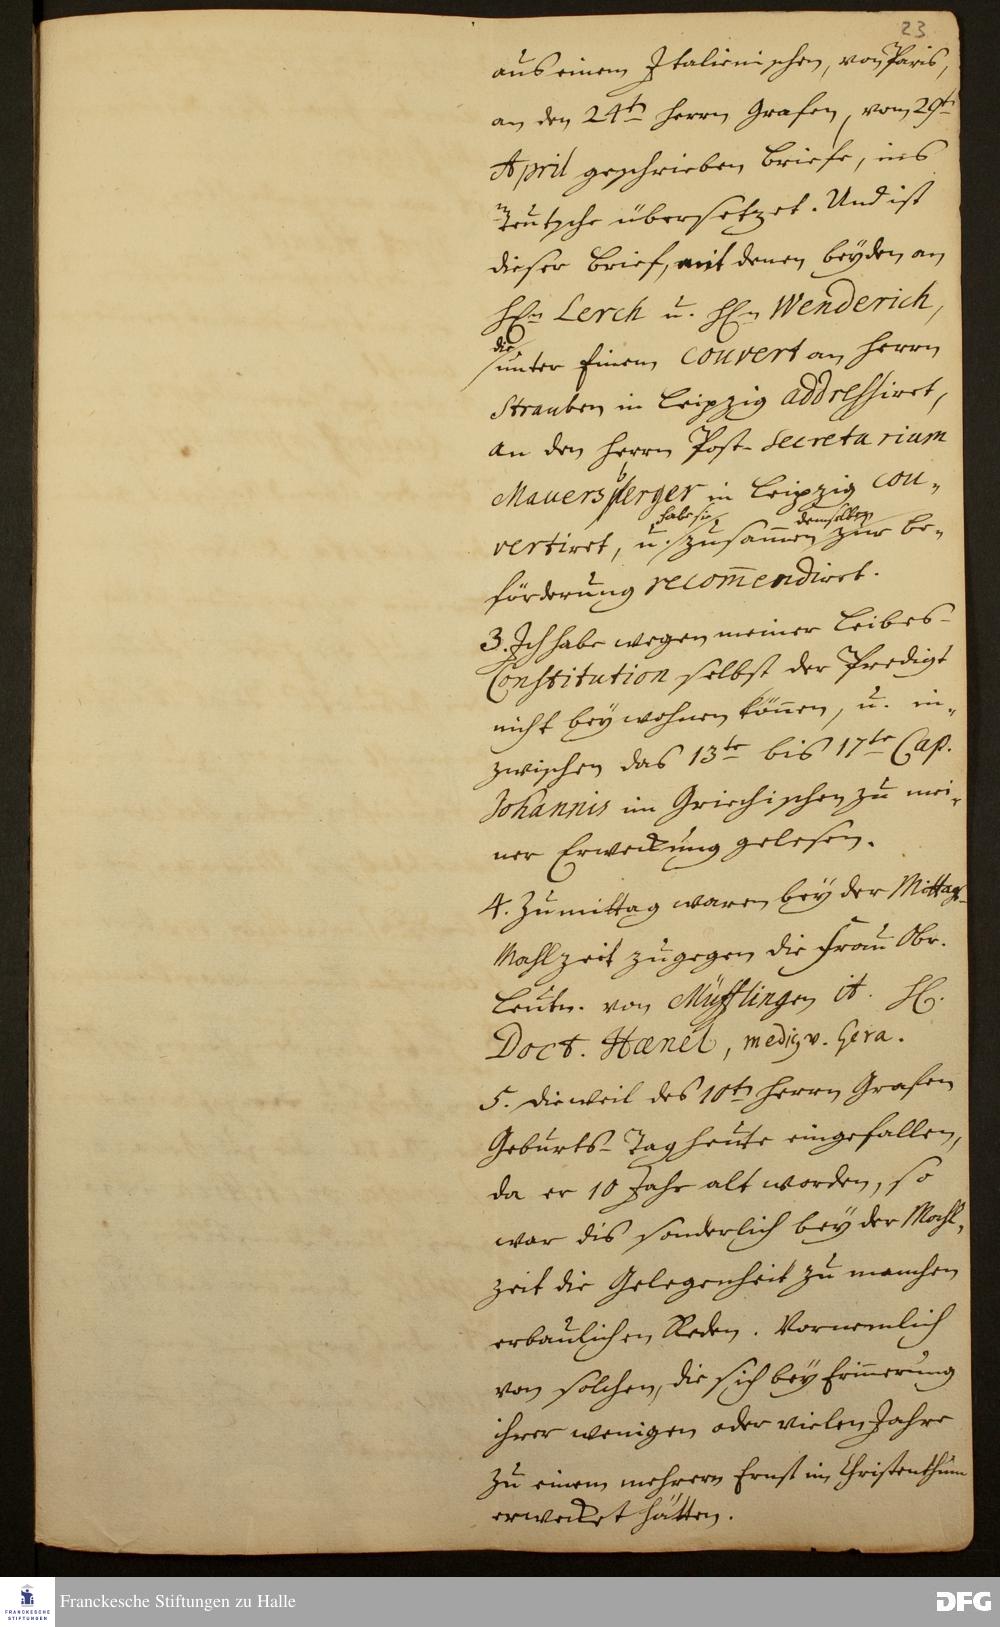 23
aus einem Italienischen, von Paris,
an den 24t Herrn Grafen, vom 29t
April geschrieben Briefe, ins
Teutsche übersetzet. Und ist
dieser Brief, mit denen beyden an
HEn Lerch u. HEn Wenderich,
die
unter Einem couvert an Herrn
Strauben in Leipzig addressiret,
an den Herrn Post-Secretarium
Mauersberger in Leipzig cou-
habe sie demselben
vertiret, u. zusammen zur Be-
förderung recom̄endiret.
3. Ich habe wegen meiner Leibes-
Constitution selbst der Predigt
nicht beywohnen kön̄en, u. in-
zwischen das 13te bis 17te Cap.
Johannis im Griechischen zu mei-
ner Erweckung gelesen.
4. Zu mittag waren bey der Mittags-
Mahlzeit zugegen die Frau Obr.
Leutn. von Müfflingen it. H.
Doct. Hænel, medic. v. Gera.
5. Dieweil des 10t Herrn Grafen
Geburts-Tag heute eingefallen,
da er 10 Jahr alt worden, so
war dis sonderlich bey der Mahl-
zeit die Gelegenheit zu manchen
erbaulichen Reden. Vornemlich
von solchen, die sich bey Erin̄erung
ihrer wenigen oder vielen Jahre
zu einem mehrern Ernst im Christenthum
erwecket hätten.
FRANCKESCHE
STIFTUNGEN
Franckesche Stiftungen zu Halle
DFG